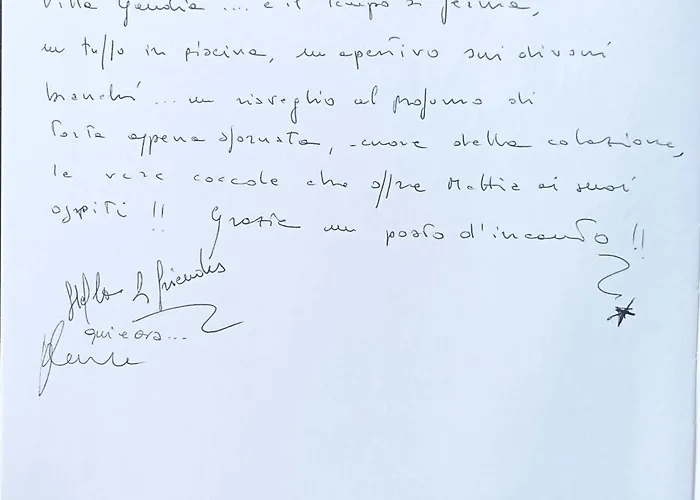 Villa Gaudia ... e il tempo si ferma,
un tuffo in piscina, un aperitivo sui divani
bianchi ... un risveglio al profumo di
torta appena sfornata, cuore della colazione,
le vere coccole che offre Mattia ai suoi
ospiti !! Grazie un posto d'incanto !!
& friends
qui e ora...